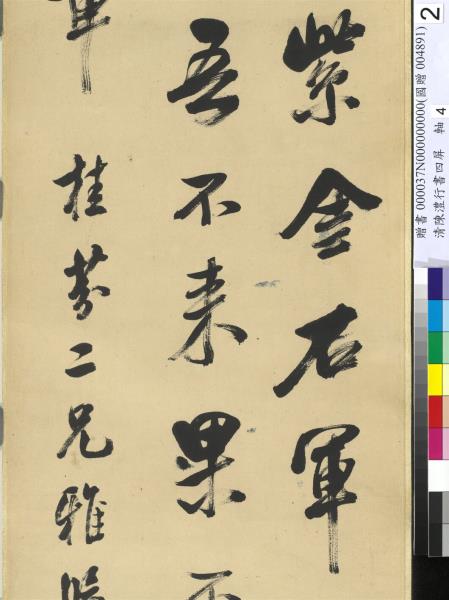 紫金右軍
吾不来果不
桂芬二兄雅
2
贈書 000037N000000000(國贈 004891)
清陳澧行書四屏 軸 4